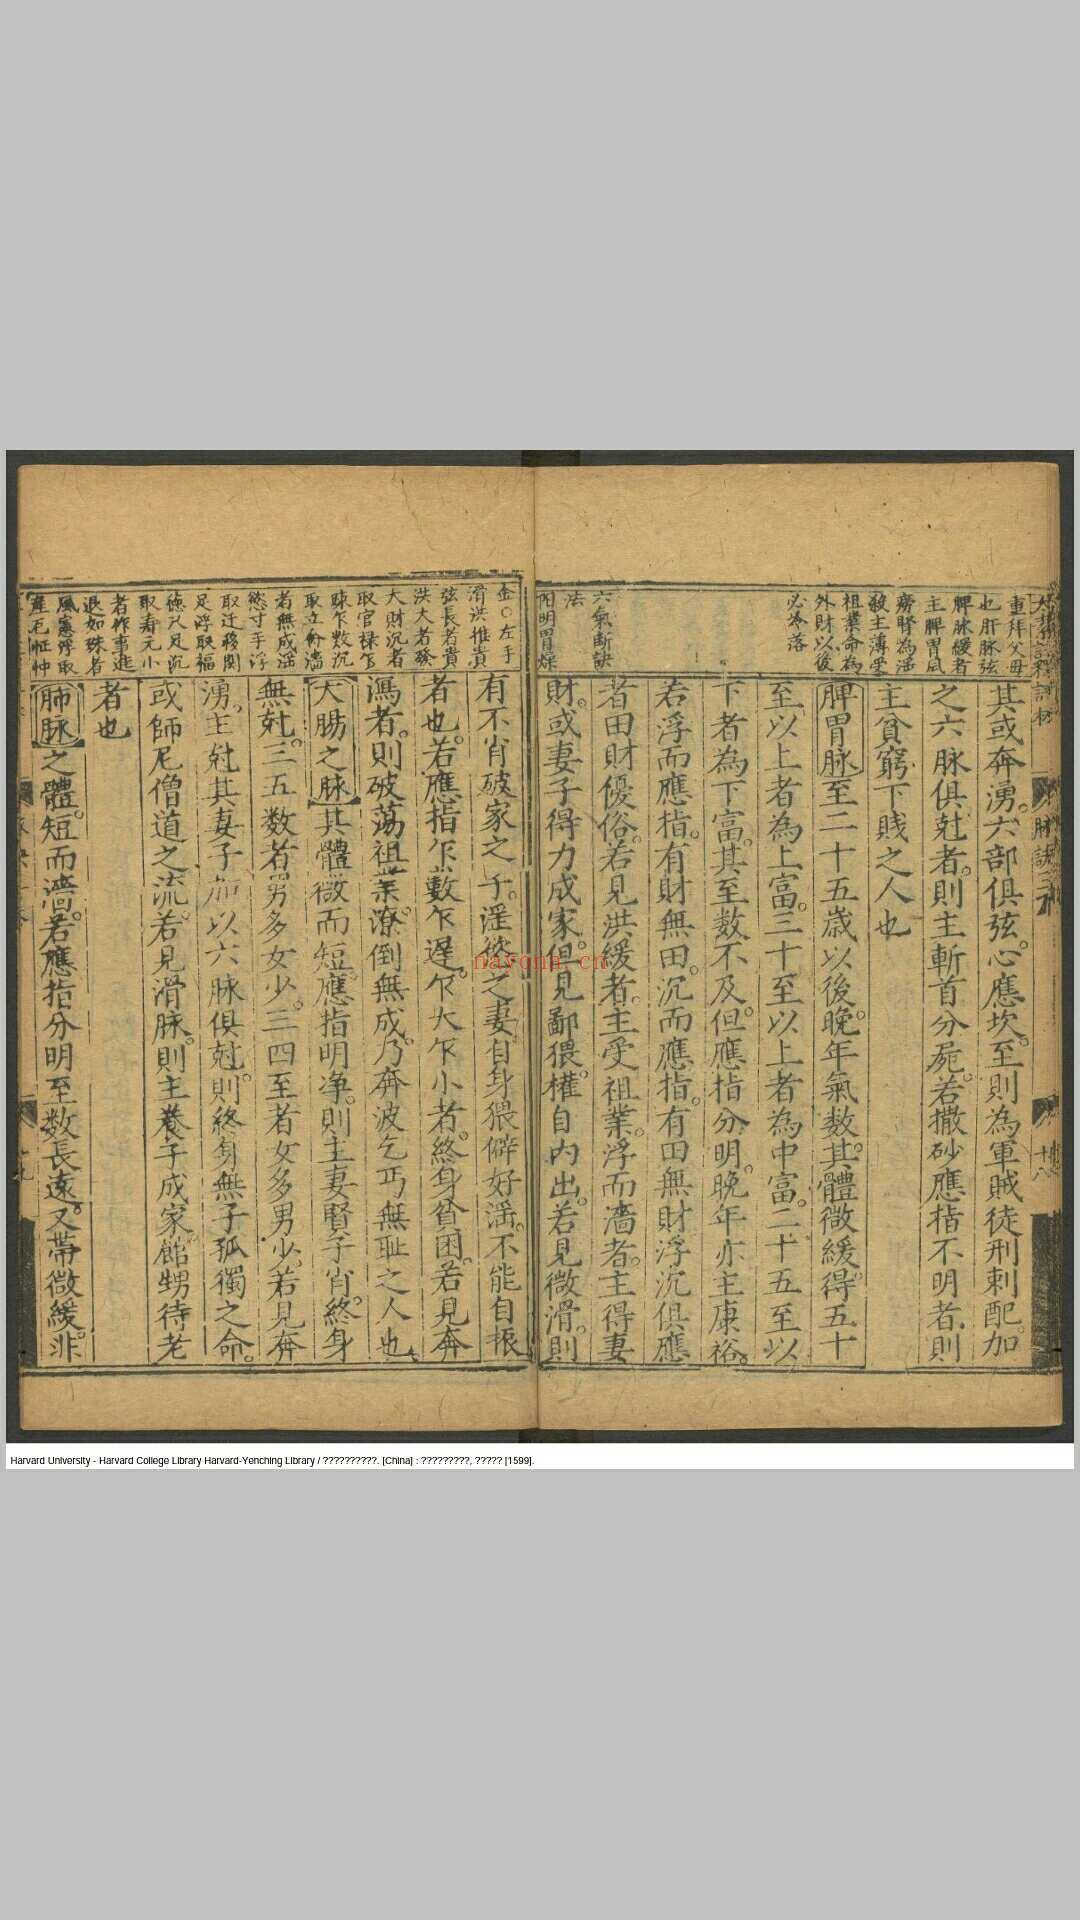 重拜父母
也肝脉弦
脾脉緩者
主脾胃風
癆腎為滛
殺主薄受
祖業命為
外財以後
必冷落
六氣断訣
法
陽明胃燥
其或奔湧。六部俱弦。心應坎。至則為軍賊徒刑刺配。加
之六脉俱尅者。則主斬首分屍。若撒砂應指不明者。則
主貧窮下賤之人也
脾胃脉至二十五歲以後晚年氣数。其體微緩。得五十
至以上者為上富。三十至以上者為中富。二十五至以
下者為下富。其至数不及。但應指分明。晚年亦主康裕。
若浮而應指。有財無田。沉而應指。有田無財。浮沉俱應
者田財優俗。若見洪緩者。主受祖業。浮而濇者。主得妻
財。或妻子得力成家。但見鄙猥。權自内出。若見微滑。則
脉訣
十八
金。○左手
滑洪推貴
弦長者貴
洪大者發
大財沉者
取官祿乍
踈乍数沉
取立斜濇
者無成滛
慾寸手浮
取迁移関
足浮取福
德尺足沉
取寿元小
者作事進
退如珠者
風憲浮取
有不肖破家之子。滛慾之妻。自身猥僻好滛。不能自振
者也。若應指乍數乍遲。乍大乍小者。終身貧困。若見奔
㵟者。則破荡祖業。潦倒無成。乃奔波乞丐無耻之人也
大腸之脉其體微而短。應指明净。則主妻賢子肖。終身
無尅。三五数者男多女少。三四至者女多男少。若見奔
湧。主尅其妻子。加以六脉俱尅。則終身無子孤獨之命。
或師尼僧道之流。若見滑脉。則主養子成家。館甥待老
者也
肺脉之體短而濇。若應指分明至数長遠。又帶微緩。非
nayona.cn
Harvard University - Harvard College Library Harvard-Yenching Library / ??????????. [China] : ?????????, ????? [1599].